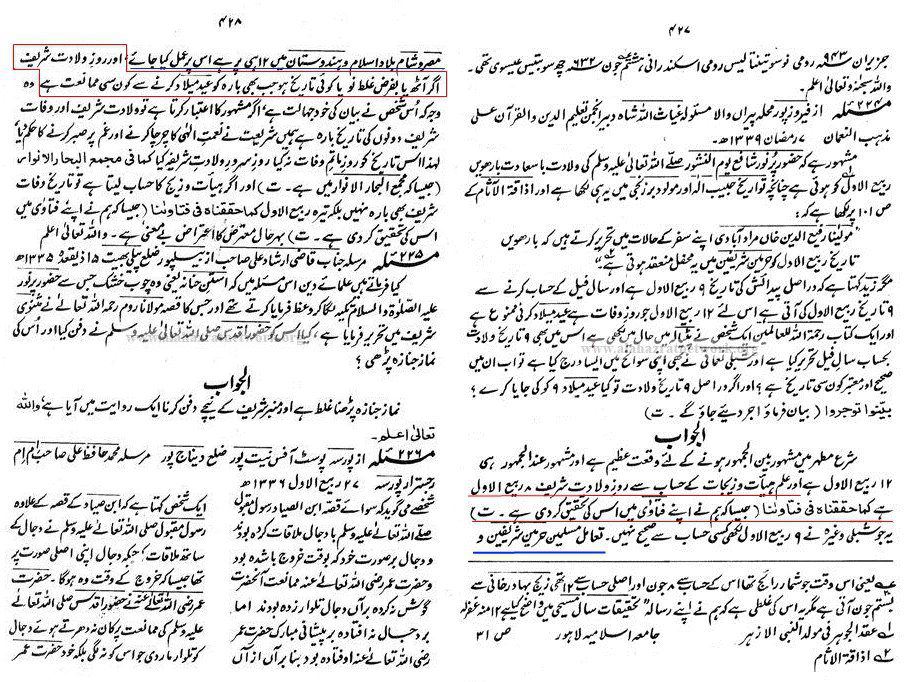 ۴۲۷
جزیران ۹۴۳ھ رومی نوسوتینتالیس رومی اسکندرانی، ہشتم جون ۶۳۲ء چھ سو بتیس عیسوی تھی۔
واللہ سبحٰنہ وتعالیٰ اعلم۔
مسئلہ ۲۲۴ از فیروزپور محلہ پیراں والا مسئولہ غیاث اللہ شاہ دبیر انجمن تعلیم الدین والقرآن علی
مذہب النعمان ۷ رمضان ۱۳۳۹ھ۔
مشہور ہے کہ حضور پُرنور شافع یوم النشور صلے اللہ تعالیٰ علیہ وسلم کی ولادت باسعادت بارھویں
ربیع الاول کو ہوئی ہے چنانچہ تواریخ حبیب الٰہ اور مولود برزنجی میں یہ ہی لکھا ہے اور اذاقۃ الآثام کے
ص ۱۰۱ پر لکھا ہے کہ:
"مولینا رفیع الدین خاں مراد آبادی اپنے سفر کے حالات میں تحریر کرتے ہیں کہ بارھویں
تاریخ ربیع الاول کو حرمین شریفین میں یہ محفل منعقد ہوتی ہے"
مگر زید کہتا ہے کہ دراصل پیدائش کی تاریخ ۹ ربیع الاول ہے اور سال فیل کے حساب کرنے سے
۹ تاریخ ربیع الاول کی آتی ہے اس لئے ۱۲ ربیع الاول جو روز وفات ہے عید میلاد کرنی ممنوع ہے
اور ایک کتاب رحمۃ اللعالمین ایک شخص نے پٹیالہ میں حال میں لکھی ہے اس میں بھی ۹ تاریخ ولادت
بحساب سال فیل تحریر کیا ہے اور شبلی نعمانی نے بھی اپنی سوانح میں ایسا درج کیا ہے تو اب ان میں
صحیح اور معتبر کون سی تاریخ ہے؟ اور اگر دراصل ۹ تاریخ ولادت تو کیا عید میلاد ۹ کو کی جایا کرے؟
بینوا توجروا (بیان فرماؤ اجر دیئے جاؤ گے۔ ت)
الجواب
شرع مطہر میں مشہور بین الجمہور ہونے کے لئے وقعت عظیم ہے اور مشہور عند الجمہور ہی
۱۲ ربیع الاول ہے اور علم ہیأت و زیجات کے حساب سے روز ولادت شریف ۸ ربیع الاول
ہے کما حققناہ فی فتاوٰنا (جیسا کہ ہم نے اپنے فتاوٰی میں اس کی تحقیق کر دی ہے۔ ت)
یہ جو شبلی وغیرہ نے ۹ ربیع الاول لکھی کسی حساب سے صحیح نہیں۔ تعامل مسلمین حرمین شریفین و
عہ یعنی اس وقت جو شمار رائج تھا اس کے حساب سے ۸ جون اور اصلی حساب سے ۱۲ تھی زیج بہادر خانی سے
بستم جون آتی ہے مگر یہ اس کی غلطی ہے کہ ہم نے اپنے رسالہ "تحقیقات سال مسیحی" میں واضح کیا ہے ۱۲ منہ غفرلہ
؎۱ عقد الجوہر فی مولد النبی الازہر جامعہ اسلامیہ لاہور ص ۳۱
؎۲ اذاقۃ الآثام
۴۲۸
مصر و شام بلاد اسلام و ہندوستان میں ۱۲ ہی پر ہے اس پر عمل کیا جائے اور روز ولادت شریف
اگر آٹھ یا بفرض غلط نو یا کوئی تاریخ ہو جب بھی بارہ کو عید میلاد کرنے سے کون سی ممانعت ہے وہ
وجہ کہ اُس شخص نے بیان کی خود جہالت ہے، اگر مشہور کا اعتبار کرتا ہے تو ولادت شریف اور وفات
شریف دونوں کی تاریخ بارہ ہے ہمیں شریعت نے نعمت الٰہی کا چرچا کرنے اور غم پر صبر کرنے کا حکم دیا
لہٰذا اس تاریخ کو روز ماتم وفات نہ کیا روز سرور ولادت شریفہ کیا کما فی مجمع البحار الانوار
(جیسا کہ مجمع البحار الانوار میں ہے۔ ت) اور اگر ہیأت و زیج کا حساب لیتا ہے تو تاریخ وفات
شریف بھی بارہ نہیں بلکہ تیرہ ربیع الاول کما حققناہ فی فتاوٰنا (جیسا کہ ہم نے اپنے فتاوٰی میں
اس کی تحقیق کر دی ہے۔ ت) بہرحال معترض کا اعتراض بے معنی ہے۔ واللہ تعالیٰ اعلم
مسئلہ ۲۲۵ مرسلہ جناب قاضی ارشاد علی صاحب از بیسلپور ضلع پیلی بھیت ۱۵ ذیقعدہ ۱۳۳۵ھ
کیا فرماتے ہیں علمائے دین اس مسئلہ میں کہ استن حنانہ یعنی وہ چوب خشک جس سے حضور پُرنور
علیہ الصلوٰۃ والسلام تکیہ لگا کر وعظ فرمایا کرتے تھے اور جس کا قصہ مولانا روم رحمۃ اللہ تعالیٰ نے مثنوی
شریف میں تحریر فرمایا ہے، کیا اس کو حضور اقدس صلی اللہ تعالیٰ علیہ وسلم نے دفن کیا اور اُس کی
نماز جنازہ پڑھی؟
الجواب
نماز جنازہ پڑھنا غلط ہے اور منبر شریف کے نیچے دفن کرنا ایک روایت میں آیا ہے، واللہ
تعالیٰ اعلم۔
مسئلہ ۲۲۶ از پورسہ پوسٹ آفس نیت پور ضلع دیناج پور مرسلہ محمد حافظ علی صاحب ام ام
رجسٹرار پورسہ ۲۷ ربیع الاول ۱۳۳۶ھ
شخصے می گوید کہ سوائے قصہ ابن الصیاد رسول مقبول
صلے اللہ تعالیٰ علیہ وسلم با دجال ملاقات کردہ بودند
و دجال بر صورت خود کہ بوقت خروج باشد بودہ
و حضرت عمر رضی اللہ تعالیٰ عنہ ممانعت آنحضرت
گوش نکردہ بر آں دجال تلوار زدہ بودند اما
بر دجال نہ افتادہ بر پیشانی مبارک حضرت عمر
رضی اللہ تعالیٰ عنہ افتادہ بود بنا بر آں از آں
ایک شخص کہتا ہے کہ ابن صیاد کے قصہ کے علاوہ
رسول مقبول صلی اللہ تعالیٰ علیہ وسلم نے دجال کے
ساتھ ملاقات؟ جبکہ دجال اپنی اصلی صورت پر
تھا جیسا کہ خروج کے وقت وہ ہوگا۔ حضرت
عمر رضی اللہ تعالیٰ عنہ نے حضور اقدس صلی اللہ تعالیٰ
علیہ وسلم کی ممانعت پر کان نہ دھرتے ہوئے دجال
کو تلوار مار دی جو اس کو نہ لگی بلکہ خود حضرت عمر